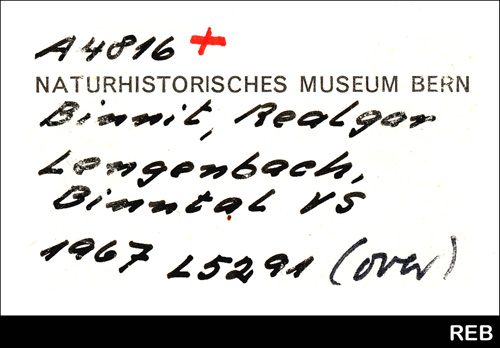 A4816 +
NATURHISTORISCHES MUSEUM BERN
Binnit, Realgar
Lengenbach,
Binntal VS
1967 L5291 (over)
REB